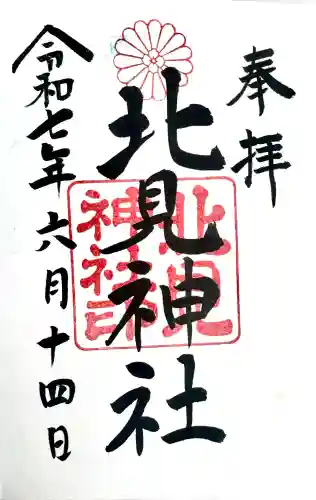 奉拝
北見神社
北見神社印
令和七年六月十四日